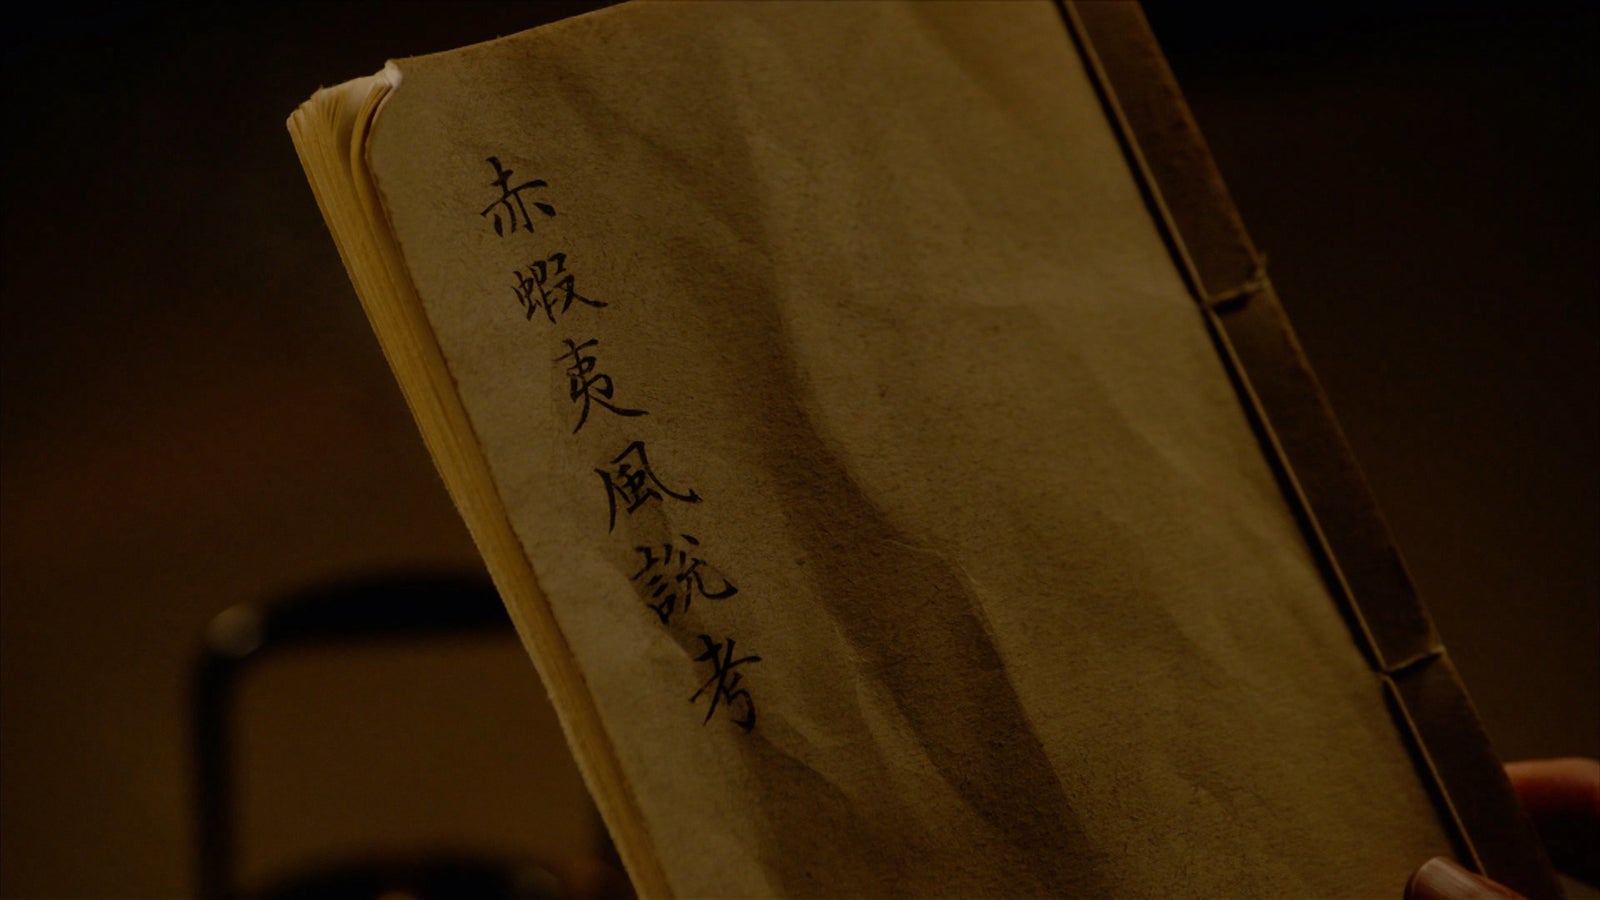 赤蝦夷風説考